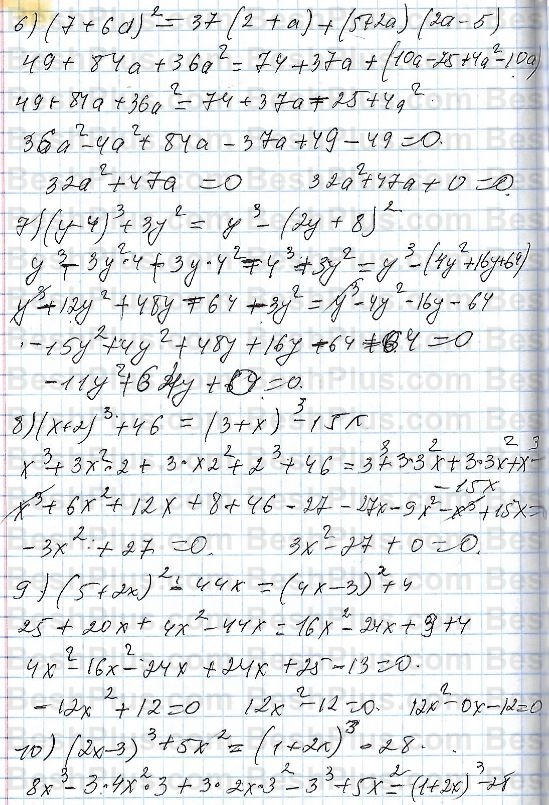 6) (7+6a)² = 37(2+a)+(5+2a)(2a-5)
49+84a+36a² = 74+37a+(10a-25+4a²-10a)
49+84a+36a² = 74+37a-25+4a²
36a²-4a²+84a-37a+49-49=0.
32a²+47a=0 32a²+47a+0=0
7) (y-4)³+3y² = y³-(2y+8)²
y³-3y²·4+3y·4²-4³+3y² = y³-(4y²+16y+64)
y³-12y²+48y-64-3y² = y³-4y²-16y-64
-15y²+4y²+48y+16y-64+64=0
-11y²+64y+0=0.
8) (x+2)³+46 = (3+x)³-15x
x³+3x²·2+3·x2²+2³+46 = 3³+3·3²x+3·3x²+x³-
-15x
x³+6x²+12x+8+46-27-27x-9x²-x³+15x=
-3x²+27=0. 3x²-27+0=0.
9) (5+2x)²-44x = (4x-3)²+4
25+20x+4x²-44x=16x²-24x+9+4
4x²-16x²-24x+24x+25-13=0.
-12x²+12=0 12x²-12=0. 12x²-0x-12=0
10) (2x-3)³+5x² = (1+2x)³-28.
8x³-3·4x²·3+3·2x·3²-3³+5x²=(1+2x)³-28